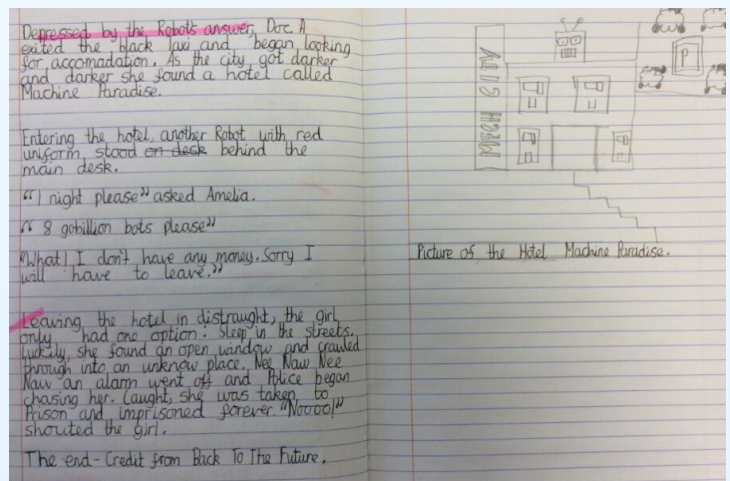 Depressed by the Robots answer, Doc. A
exited the black taxi and, began looking
for accomadation. As the city got darker
and darker she found a hotel called
Machine Paradise.
Entering the hotel, another Robot with red
uniform, stood on desk behind the
main desk.
"1 night please" asked Amelia.
"8 gobillion bots please"
"What! I don't have any money. Sorry I
will have to leave."
Leaving the hotel in distraught, the girl
only had one option: Sleep in the streets.
Luckily, she found an open window and crawled
through into an unknow place. Nee Naw Nee
Naw an alarm went off and Police began
chasing her. Caught, she was taken to
Prison and imprisoned forever. "Noooo!"
shouted the girl.
The end - Credit from Back To The Future.
P
Picture of the Hotel Machine Paradise.